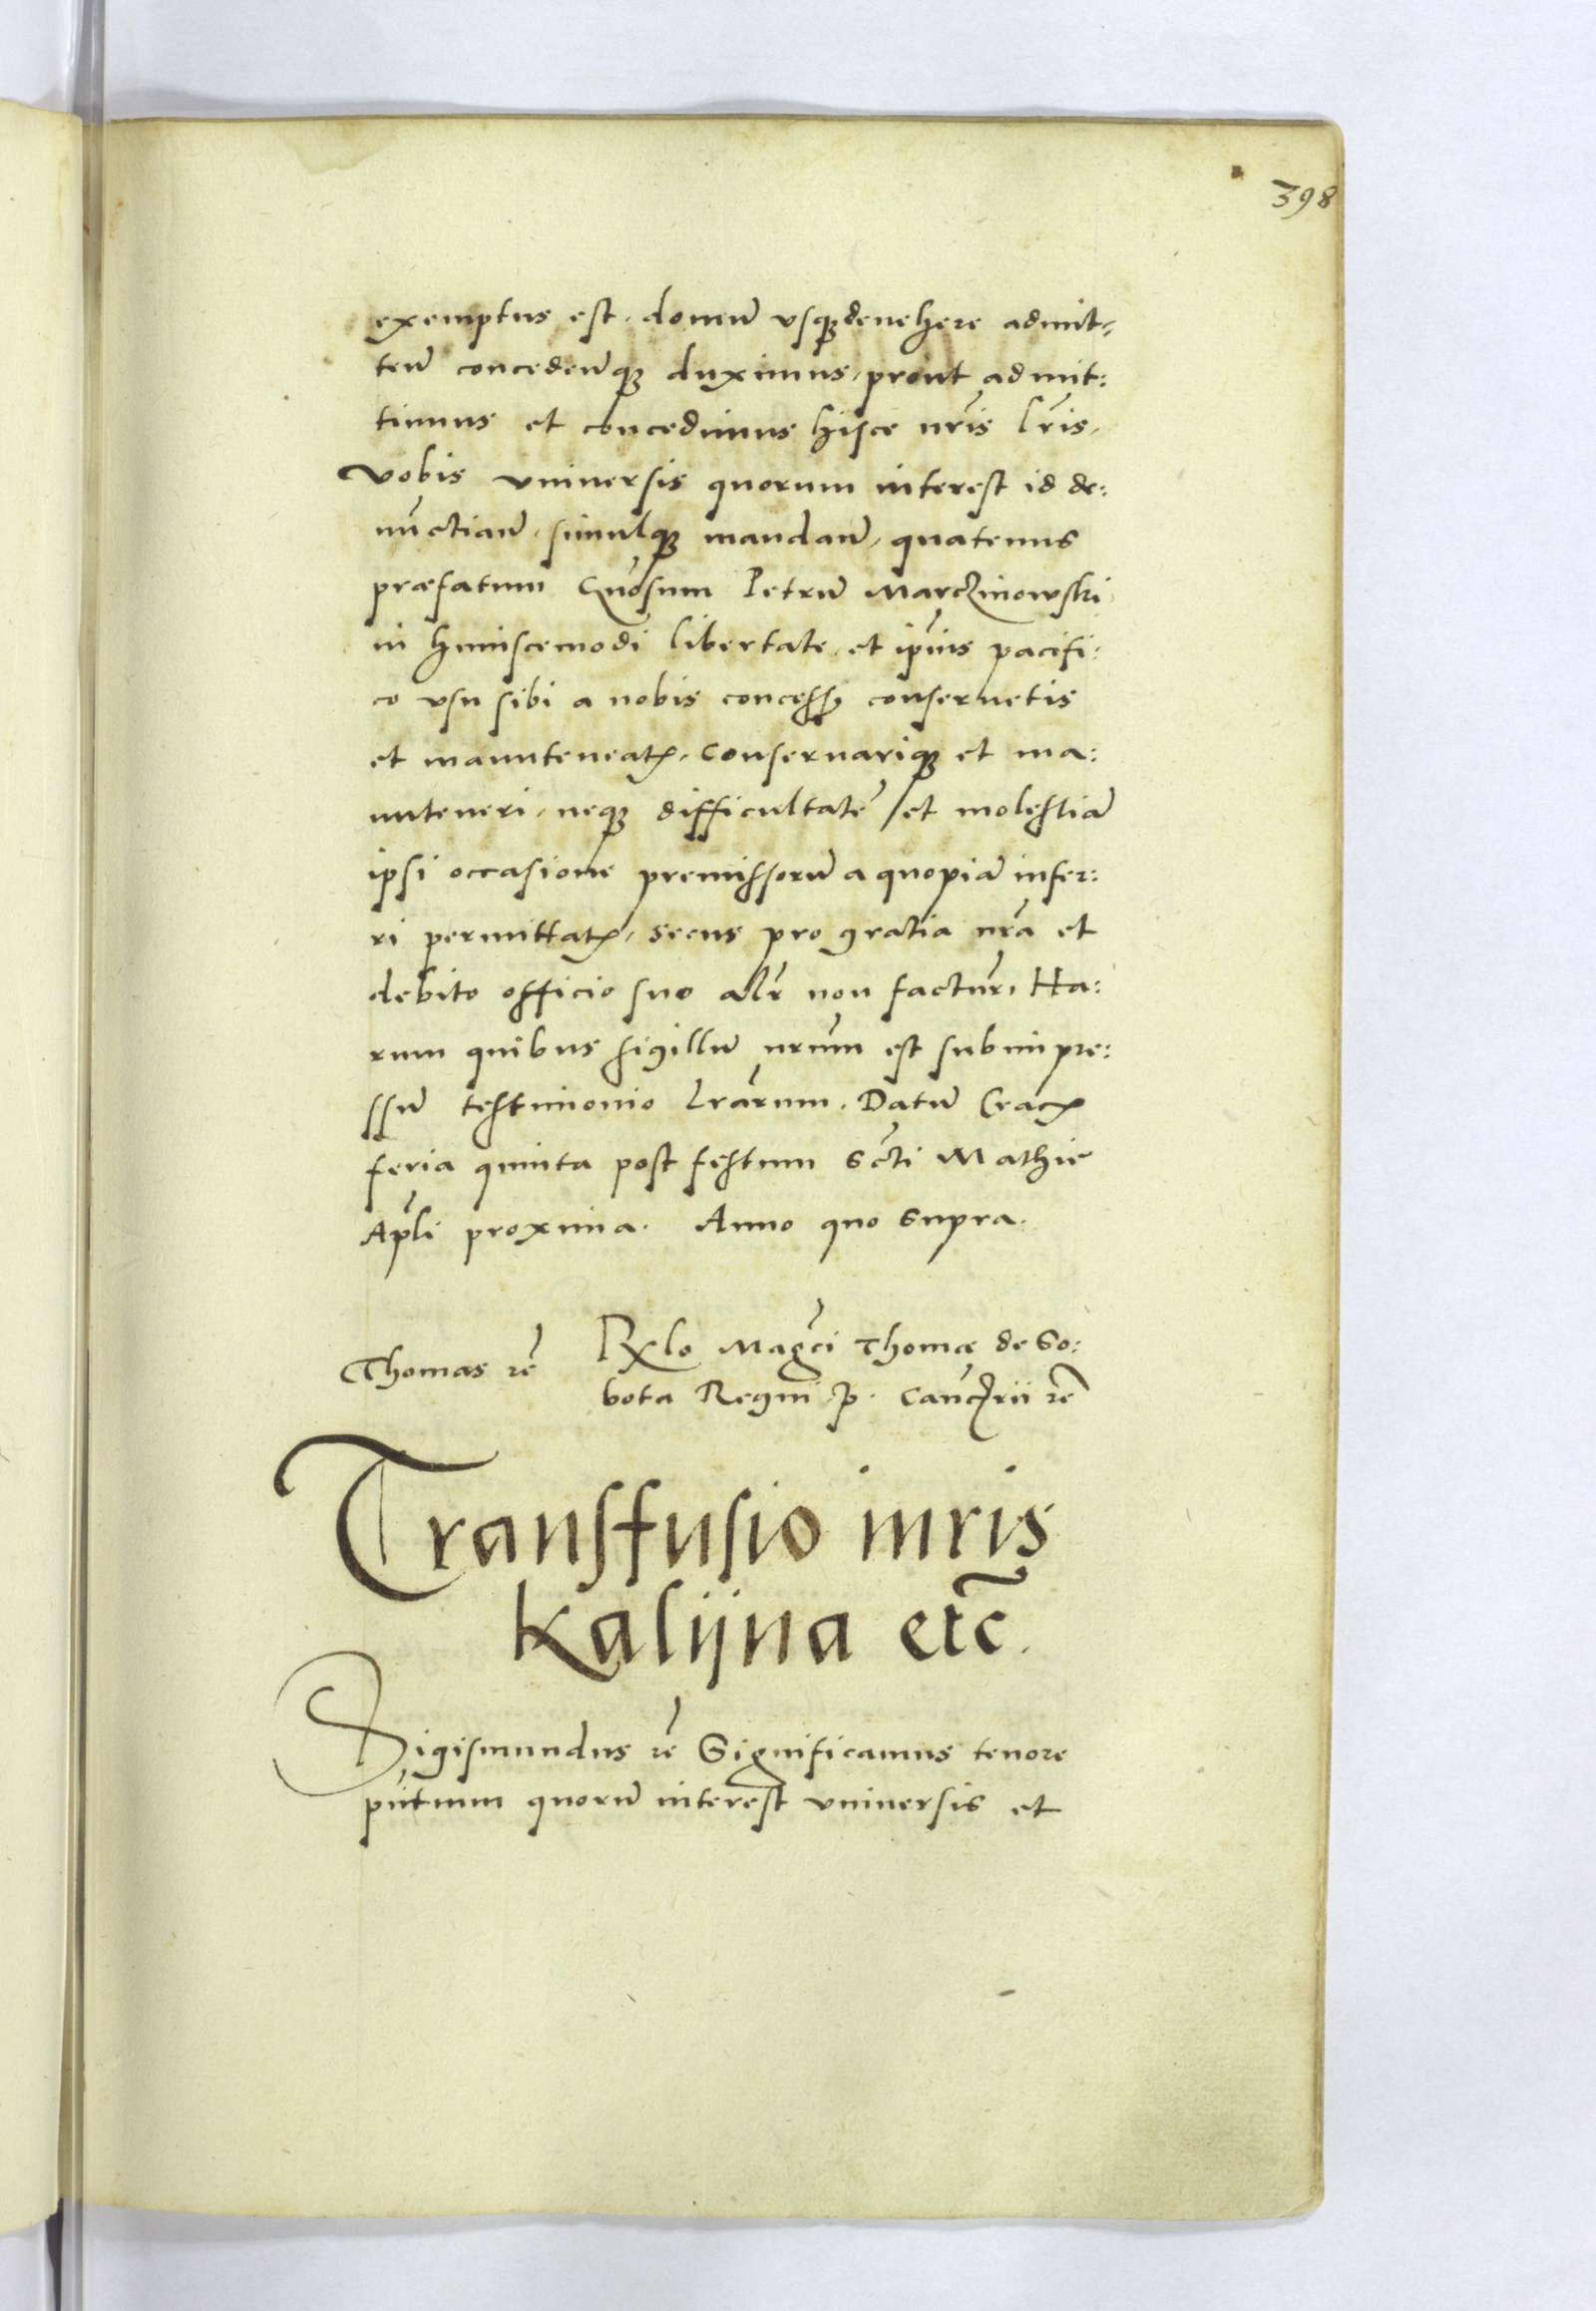 398
exemptus est. domū usq₃ devehere admit-
ten̄ conceden̄q₃ duximus, prout admit:
timus et concedimus hisce nr̃is lr̃is,
Vobis universis quorum interest id de:
nūctian̄, simulq₃ mandan̄, quatenus
præfatum Gn̄osum Petrū Marczinowski
in huiuscemodi libertate, et ip̄ius pacifi:
co usu sibi a nobis concesso conservetis
et manuteneatꝭ, conservariq₃ et ma:
nuteneri, neq₃ difficultatē et molestiā
ipsi occasione premissorū a quopiā infer:
ri permittatꝭ, secus pro gratia nr̃a et
debito officio suo al̄r non factur̃, Ha:
rum quibus sigillū nr̃um est subimpre:
ssū testimonio lr̃arum. Datū Cracꝭ
feria quinta post festum Sc̄ti Mathie
Ap̄li proxima. Anno quo supra.
Thomas ꝛc̄
Rx̄lo Mag̃ci Thomæ de So:
bota Regni p. Canc̄rii ꝛc̄
Transfusio iuris
Kalijna etc̄.
Sigismundus ꝛc̄ Significamus tenore
pn̄tium quorū interest universis et